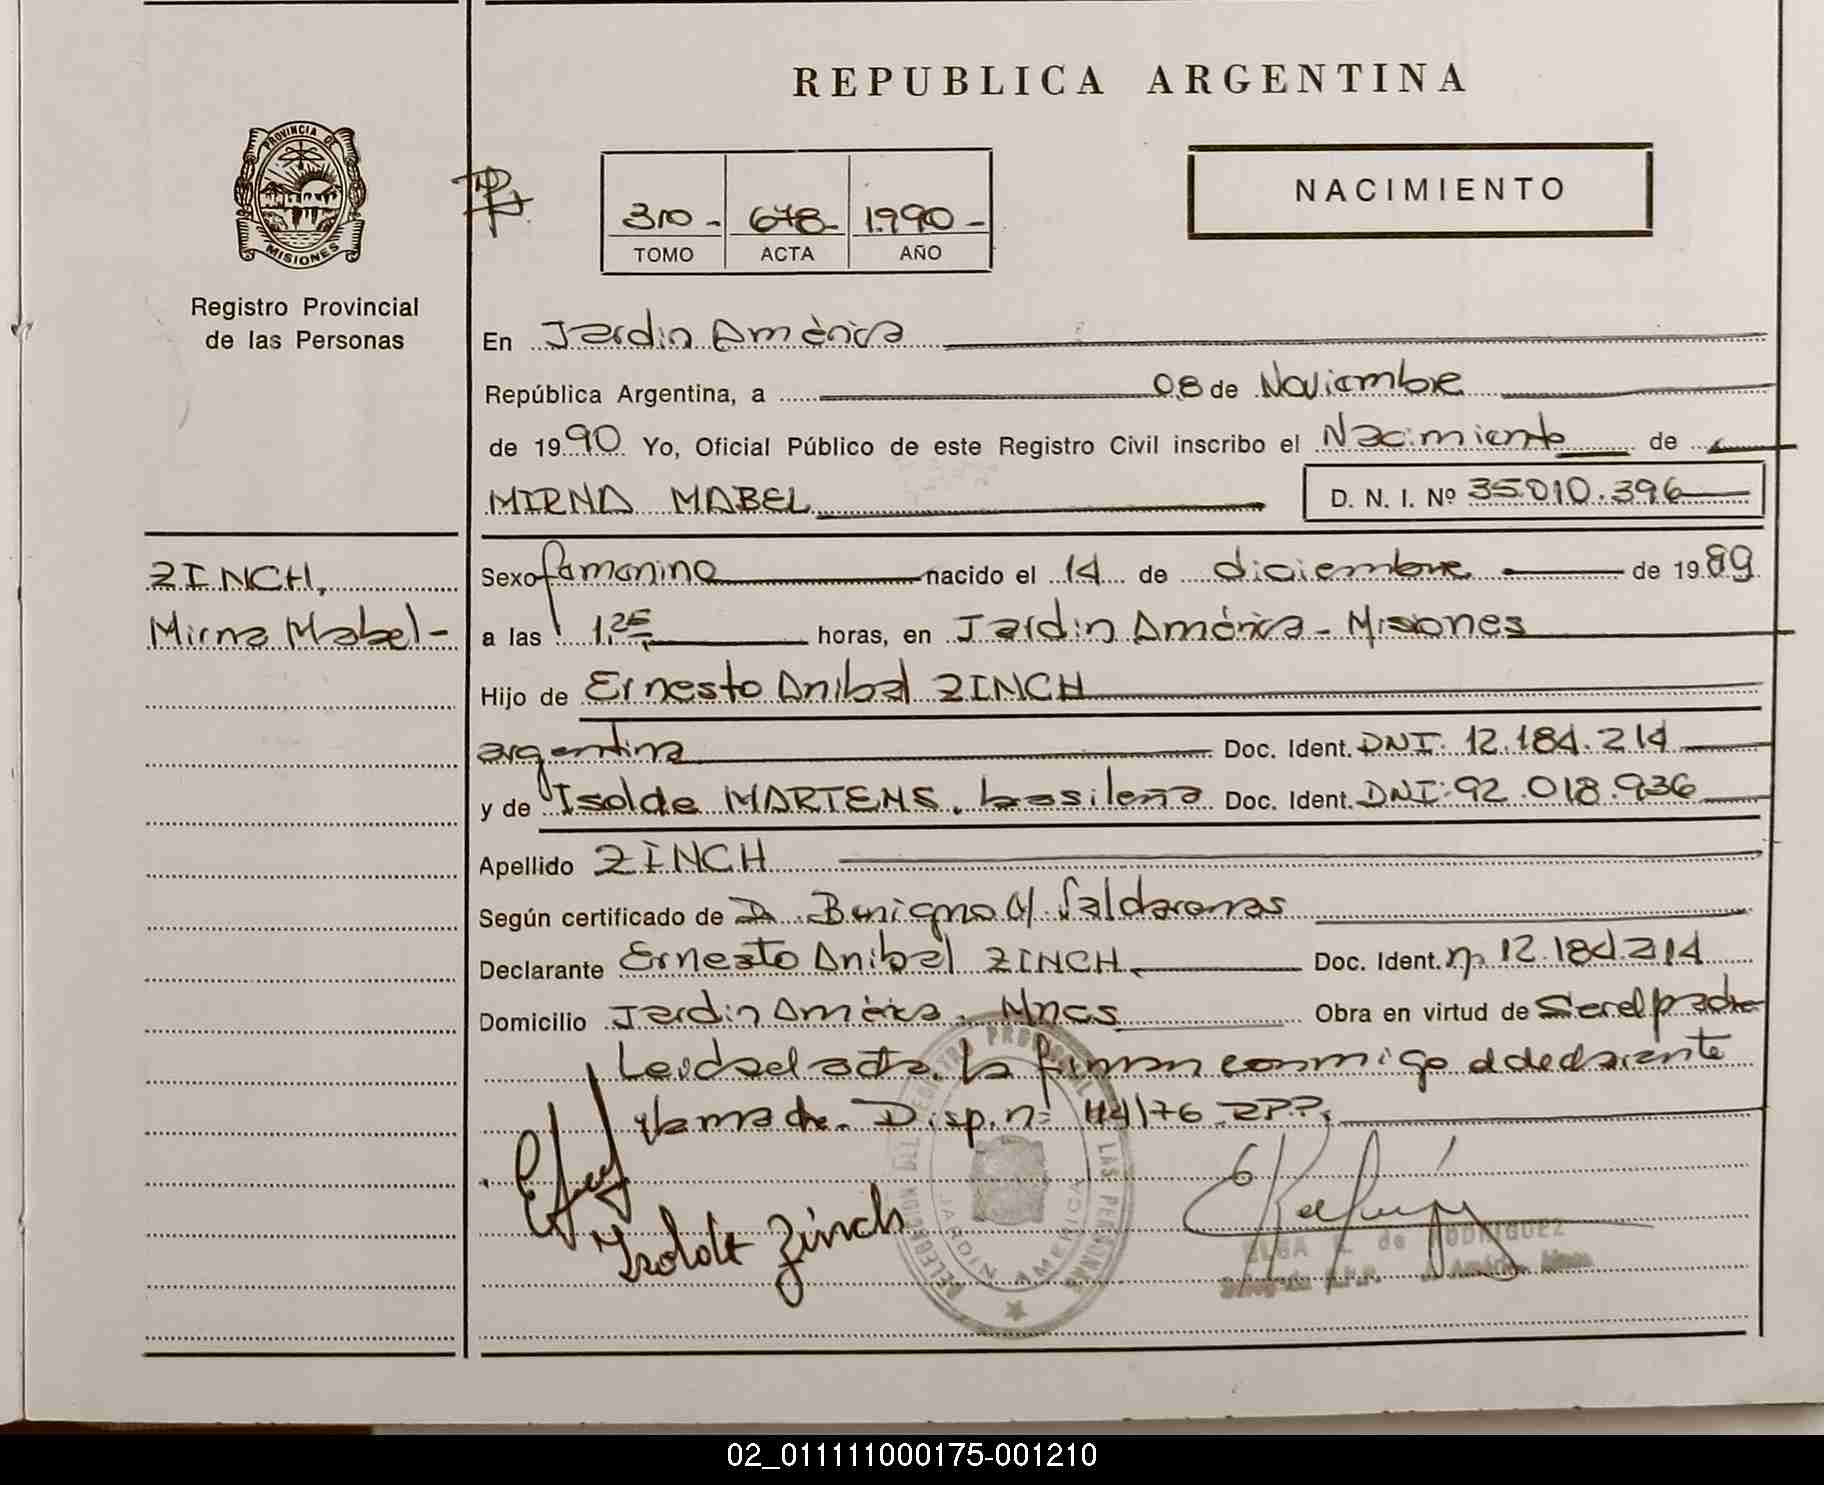 REPUBLICA ARGENTINA
PROVINCIA DE
MISIONES
Registro Provincial
de las Personas
310 - 678 - 1.990 -
TOMO ACTA AÑO
NACIMIENTO
En Jardin América
República Argentina, a 08 de Noviembre
de 1990 Yo, Oficial Público de este Registro Civil inscribo el Nacimiento de
MIRNA MABEL D. N. I. Nº 35.010.396
ZINCH,
Mirna Mabel -
Sexo femenino nacido el 14 de diciembre de 1989
a las 1,25 horas, en Jardin América - Misiones
Hijo de Ernesto Anibal ZINCH
argentina Doc. Ident. DNI: 12.184.214
y de Isolde MARTENS, brasileña Doc. Ident. DNI: 92.018.936
Apellido ZINCH
Según certificado de D. Benigno
Declarante Ernesto Anibal ZINCH Doc. Ident. 12.184.214
Domicilio Jardin América - Mnes Obra en virtud de Ser el padre
Leida el acta, la firman conmigo el declarante
y la madre. Disp. nº 44/76 RPP.
Isolde Zinch
DELEGACION DEL REGISTRO PROVINCIAL DE LAS PERSONAS
JARDIN AMERICA
ELSA de RODRIGUEZ
02_011111000175-001210